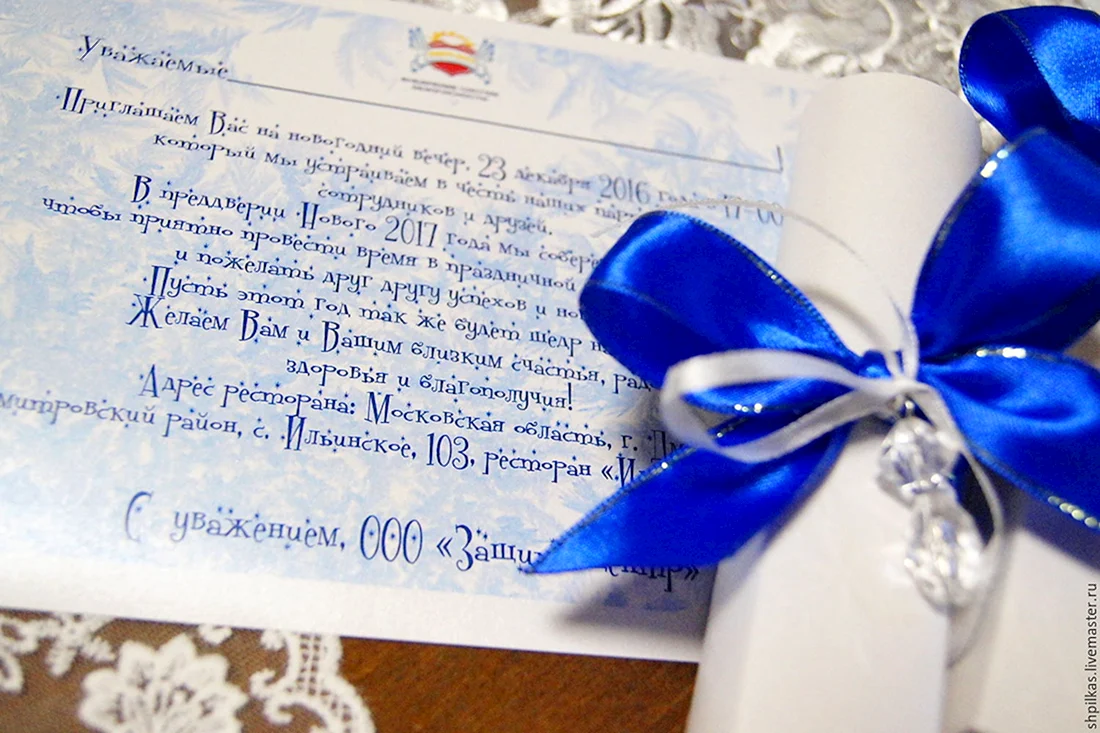 Уважаемые
Приглашаем Вас на новогодний вечер, 23 декабря 2016 года 17-00
который мы устраиваем в честь наших
сотрудников и друзей.
В преддверии Нового 2017 года мы
чтобы приятно провести время в праздничной
и пожелать друг другу успехов и
Пусть этот год так же будет щедр
Желаем Вам и Вашим близким счастья,
здоровья и благополучия!
Адрес ресторана: Московская область, г.
район, с. Ильинское, 103, ресторан
С уважением, ООО
shpilkas.livemaster.ru